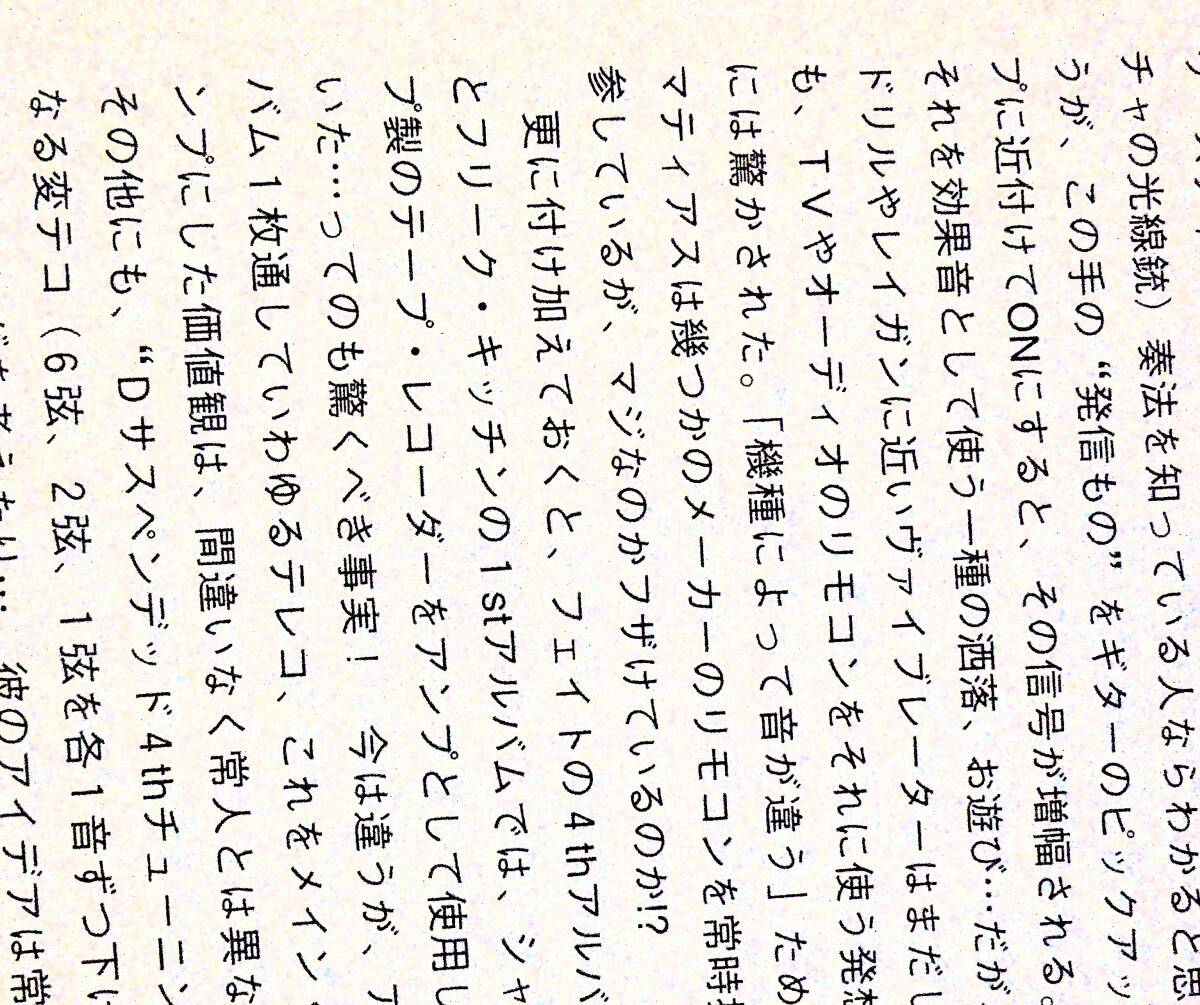 チャの光線銃）奏法を知っている人ならわかると思
うが、この手の“発信もの”をギターのピックアッ
プに近付けてONにすると、その信号が増幅される。
それを効果音として使う一種の洒落、お遊び…だが
ドリルやレイガンに近いヴァイブレーターはまだし
も、TVやオーディオのリモコンをそれに使う発想
には驚かされた。「機種によって音が違う」ため
マティアスは幾つかのメーカーのリモコンを常時
参しているが、マジなのかフザけているのか!?
更に付け加えておくと、フェイトの4thアルバ
とフリーク・キッチンの1stアルバムでは、シャ
プ製のテープ・レコーダーをアンプとして使用し
いた…ってのも驚くべき事実！　今は違うが、ア
バム1枚通していわゆるテレコ、これをメイン
ンプにした価値観は、間違いなく常人とは異な
その他にも、“Dサスペンデッド4thチューニン
なる変テコ（6弦、2弦、1弦を各1音ずつ下げ
彼のアイデアは常